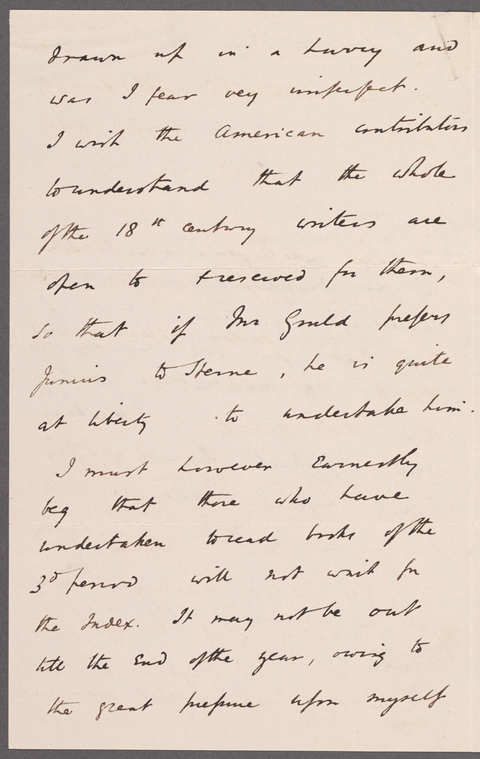 drawn up in a hurry and
was I fear very imperfect.
I wish the American contributors
to understand that the whole
of the 18th century writers are
open to & reserved for them,
so that if Mr Gould prefers
Junius to Sterne, he is quite
at liberty to undertake him.
I must however Earnestly
beg that those who have
undertaken to read books of the
3d period will not wait for
the Index. It may not be out
till the End of the year, owing to
the great pressure upon myself